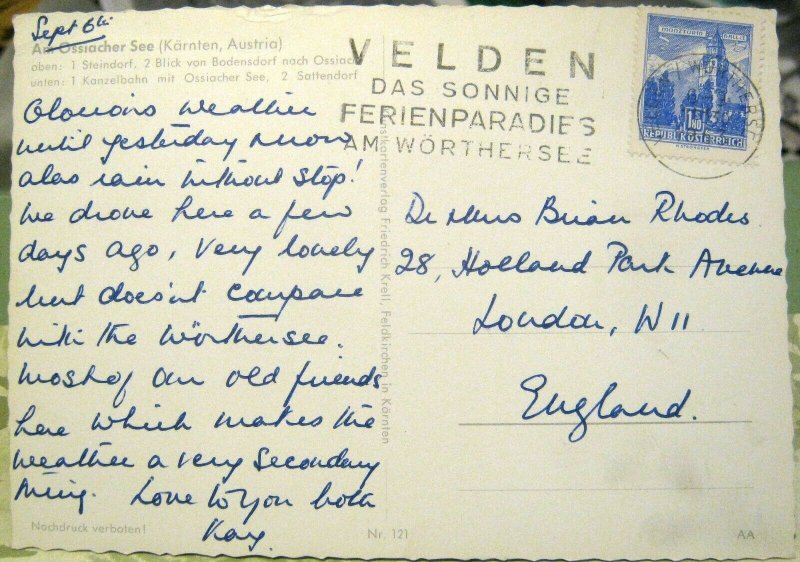 Sept 6th
Am Ossiacher See (Kärnten, Austria)
oben: 1 Steindorf, 2 Blick von Bodensdorf nach Ossiach
unten: 1 Kanzelbahn mit Ossiacher See, 2 Sattendorf
Glorious weather
until yesterday now
alas rain without stop!
We drove here a few
days ago, very lovely
but doesn't compare
with the Wörthersee.
Most of our old friends
here which makes the
weather a very secondary
thing. Love to you both
Kay.
Nachdruck verboten!
Postkartenverlag Friedrich Krell, Feldkirchen in Kärnten
Nr. 121
AA
VELDEN
DAS SONNIGE
FERIENPARADIES
AM WÖRTHERSEE
REPUBLIK ÖSTERREICH
Dr Mrs Brian Rhodes
28, Holland Park Avenue
London, W11.
England.